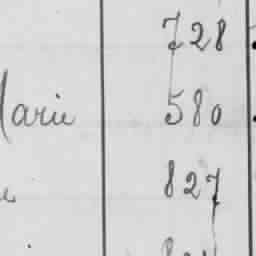 728
Marie 580
827